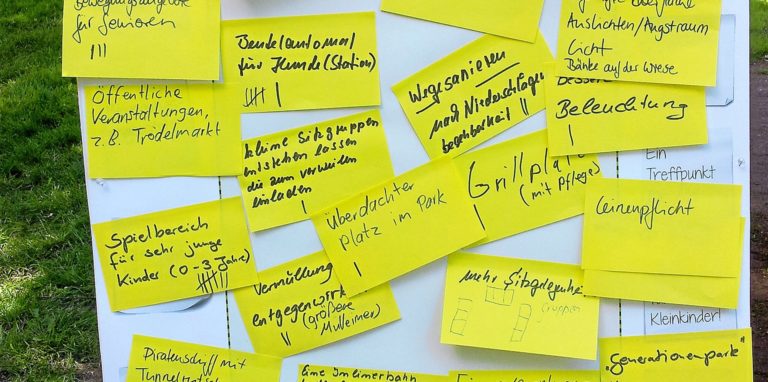 Bewegungsangebote
für Senioren
|||
Beutelautomat
für Hunde (Station)
Wegesanieren
nach Niederschlägen
begehbarkeit ||
Auslichten/Angstraum
Licht
Bänke auf der Wiese
Öffentliche
Veranstaltungen,
z.B. Trödelmarkt
kleine Sitzgruppen
entstehen lassen
die zum verweilen
einladen
|
bessere
Beleuchtung
|
Grillplatz
(mit Pflege)
|
Ein
Treffpunkt
Überdachter
Platz im Park
|
Leinenpflicht
Spielbereich
für sehr junge
Kinder (0-3 Jahre)
Vermüllung
entgegenwirken
(größere
Mülleimer)
||
mehr Sitzgelegenhei
Gruppen
Kleinkinder!
Piratenschiff mit
"Generationenpark"